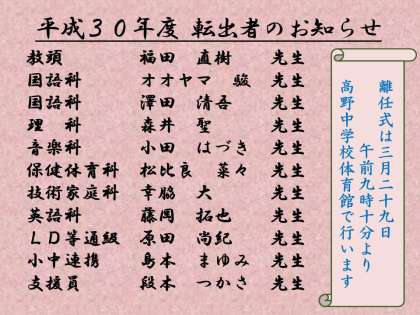 平成30年度 転出者のお知らせ
教頭 福田 直樹 先生
国語科 オオヤマ 駿 先生
国語科 澤田 清吾 先生
理 科 森井 聖 先生
音楽科 小田 はづき 先生
保健体育科 松比良 菜々 先生
技術家庭科 幸脇 大 先生
英語科 藤岡 拓也 先生
LD等通級 原田 尚紀 先生
小中連携 島本 まゆみ 先生
支援員 段本 つかさ 先生
離任式は三月二十九日
午前九時十分より
高野中学校体育館で行います